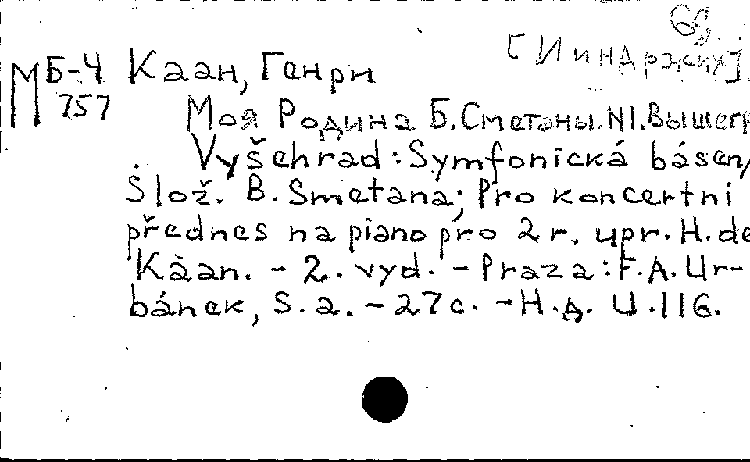 [Ииндржих]
М Б-4 Каан, Генри
757
Моя Родина Б. Сметаны. N1. Вышегр
Vyšehrad: Symfonická báseň/
Slož. B. Smetana; Pro koncertni
přednes na piano pro 2 r. upr. H. de
Kàan. - 2. vyd. - Praza: F. A. Ur-
bánek, S. a. - 27 c. - Н. д. U. 116.